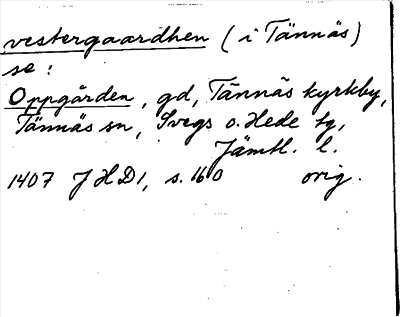 vestergaardhen (i Tännäs)
se:
Oppgården, gd, Tännäs kyrkby,
Tännäs sn, Svegs o. Hede tg,
Jämtl. l.
1407 JHD1, s. 160 orig.